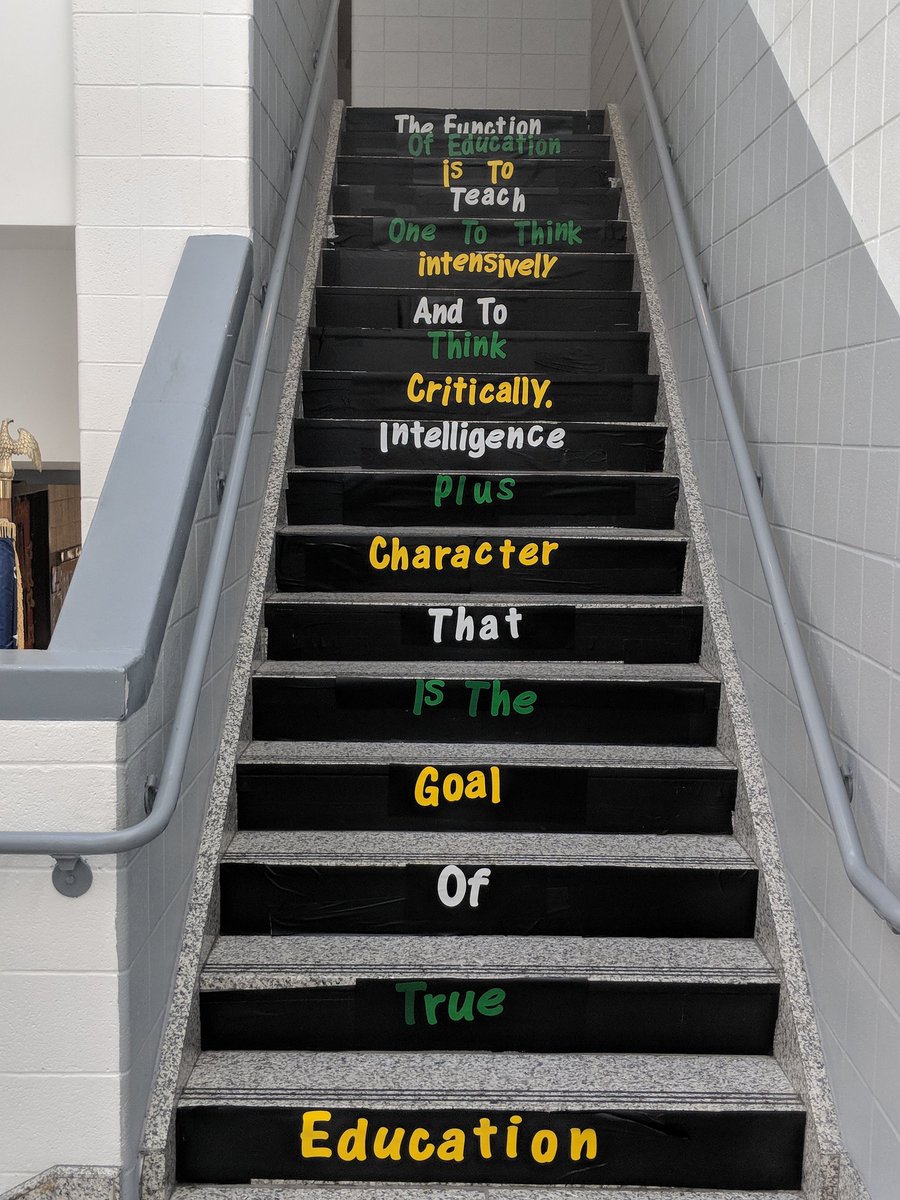 The Function
Of Education
is To
Teach
One To Think
intensively
And To
Think
Critically.
Intelligence
plus
Character
That
Is The
Goal
Of
True
Education